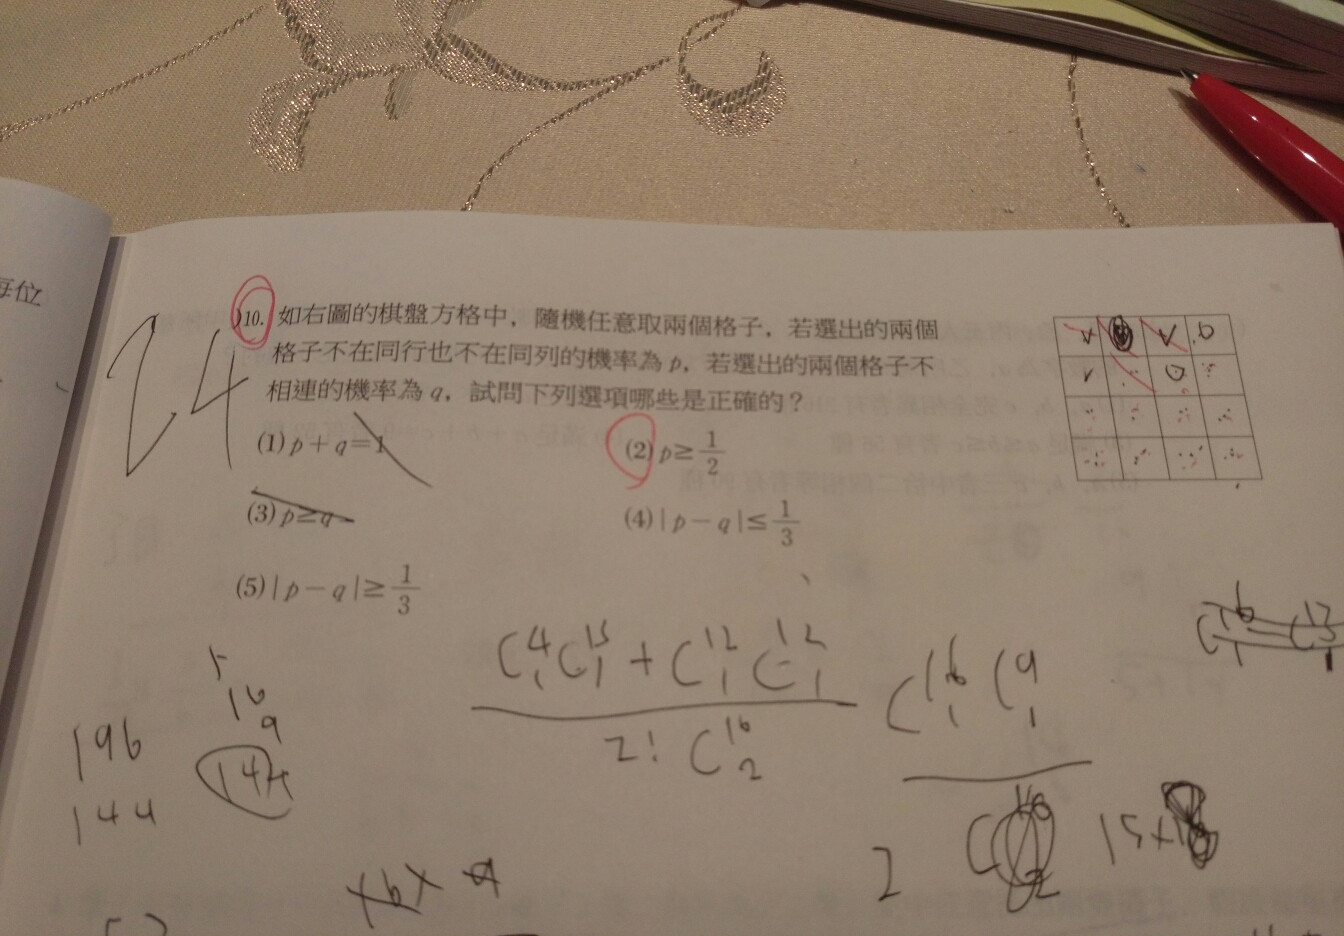 每位
24
10. 如右圖的棋盤方格中，隨機任意取兩個格子，若選出的兩個
格子不在同行也不在同列的機率為 p，若選出的兩個格子不
相連的機率為 q，試問下列選項哪些是正確的？
(1) p + q = 1
(2) p ≥ 1/2
(3) p ≥ q
(4) | p − q | ≤ 1/3
(5) | p − q | ≥ 1/3
C⁴₁C¹⁵₁ + C¹²₁C¹²₁
2! C¹⁶₂
C¹⁶₁ C⁹₁
16
9
196
144
144
2
15×